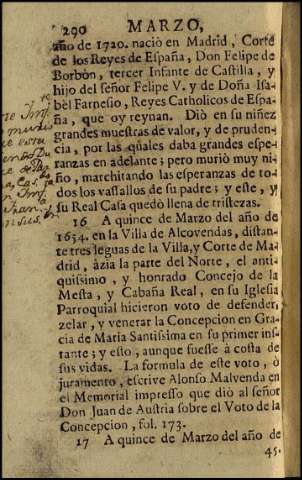 290 MARZO,
año de 1720. naciò en Madrid, Corte
de los Reyes de España, Don Felipe de
Borbòn, tercer Infante de Castilla, y
hijo del señor Felipe V. y de Doña Isa-
bèl Farnesio, Reyes Catholicos de Espa-
ña, que oy reynan. Diò en su niñez
grandes muestras de valor, y de pruden-
cia, por las quales daba grandes espe-
ranzas en adelante; pero muriò muy ni-
ño, marchitando las esperanzas de to-
dos los vassallos de su padre; y este, y
su Real Casa quedò llena de tristezas.
16 A quince de Marzo del año de
1654. en la Villa de Alcovendas, distan-
te tres leguas de la Villa, y Corte de Ma-
drid, àzia la parte del Norte, el anti-
quissimo, y honrado Concejo de la
Mesta, y Cabaña Real, en su Iglesia
Parroquial hicieron voto de defender,
zelar, y venerar la Concepcion en Gra-
cia de Maria Santissima en su primer ins-
tante; y esto, aunque fuesse à costa de
sus vidas. La formula de este voto, ò
juramento, escrive Alonso Malvenda en
el Memorial impresso que diò al señor
Don Juan de Austria sobre el Voto de la
Concepcion, fol. 173.
17 A quince de Marzo del año de
45.